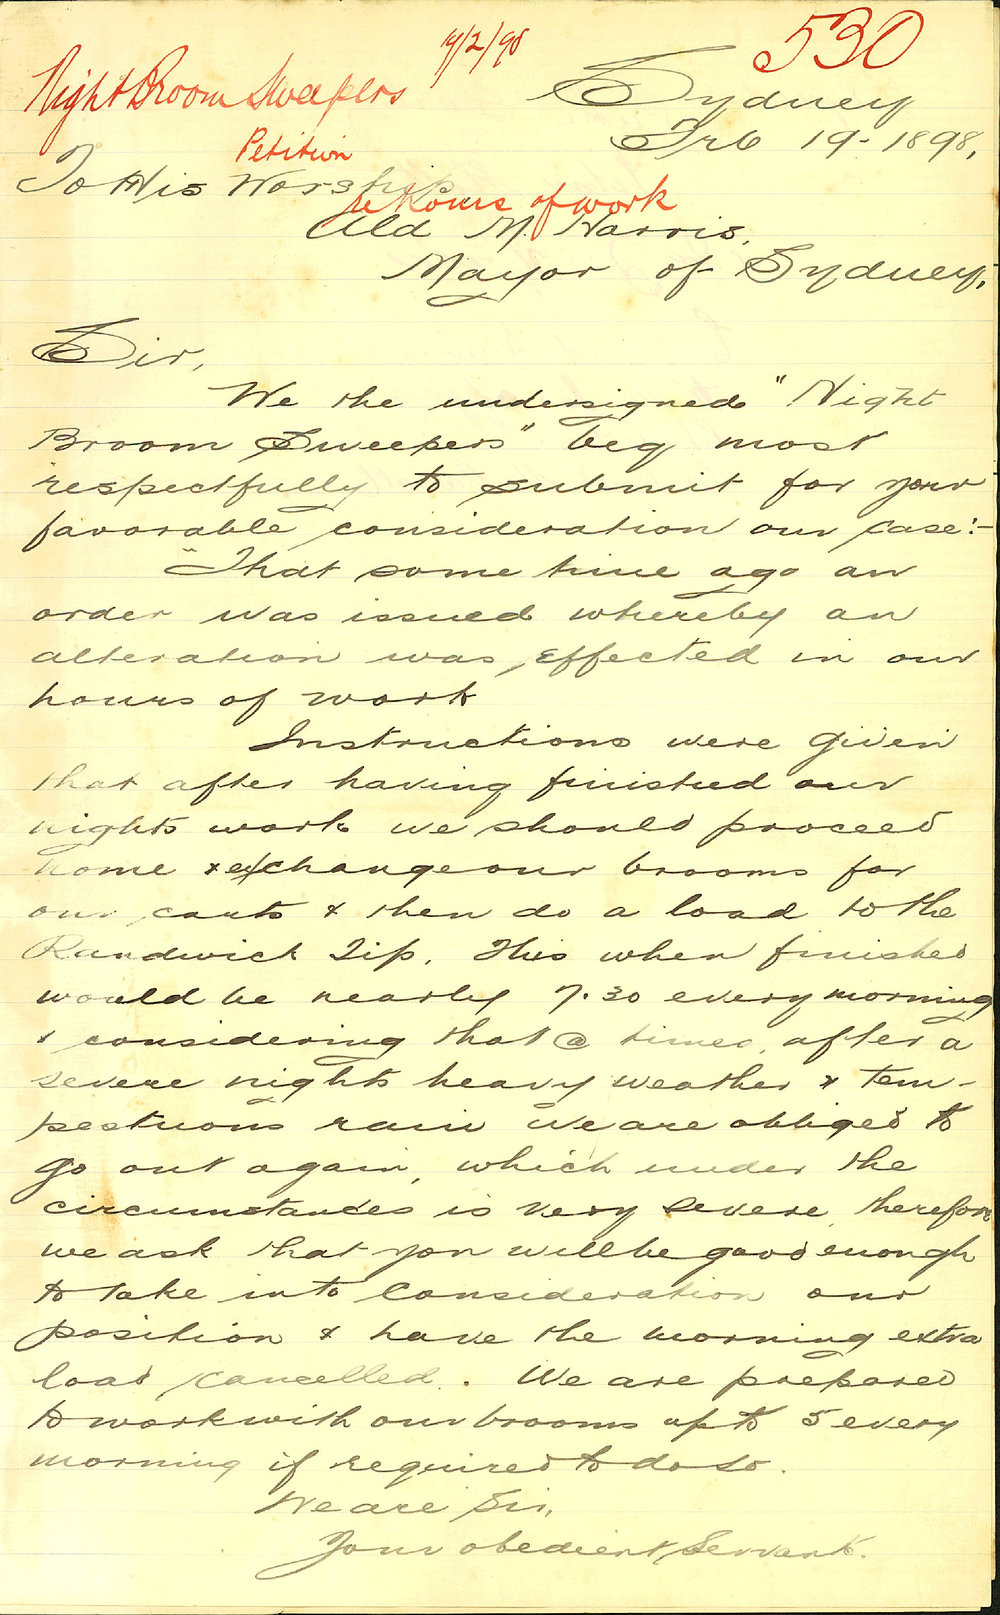 530
19/2/98
Night Broom Sweepers
Sydney
Feb 19 - 1898,
Petition
To His Worship
re Hours of work
Ald M. Harris,
Mayor of Sydney,
Sir,
We the undersigned "Night
Broom Sweepers" beg most
respectfully to submit for your
favorable consideration our case:-
"That some time ago an
order was issued whereby an
alteration was effected in our
hours of work
Instructions were given
that after having finished our
nights work we should proceed
home & exchange our brooms for
our carts & then do a load to the
Randwick Tip. This when finished
would be nearly 7.30 every morning
& considering that @ times, after a
severe nights heavy weather & tem-
pestuous rain we are obliged to
go out again, which under the
circumstances is very severe, therefore
we ask that you will be good enough
to take into consideration our
position & have the morning extra
load cancelled. We are prepared
to work with our brooms up to 5 every
morning if required to do so.
We are Sir,
Your obedient Servants.